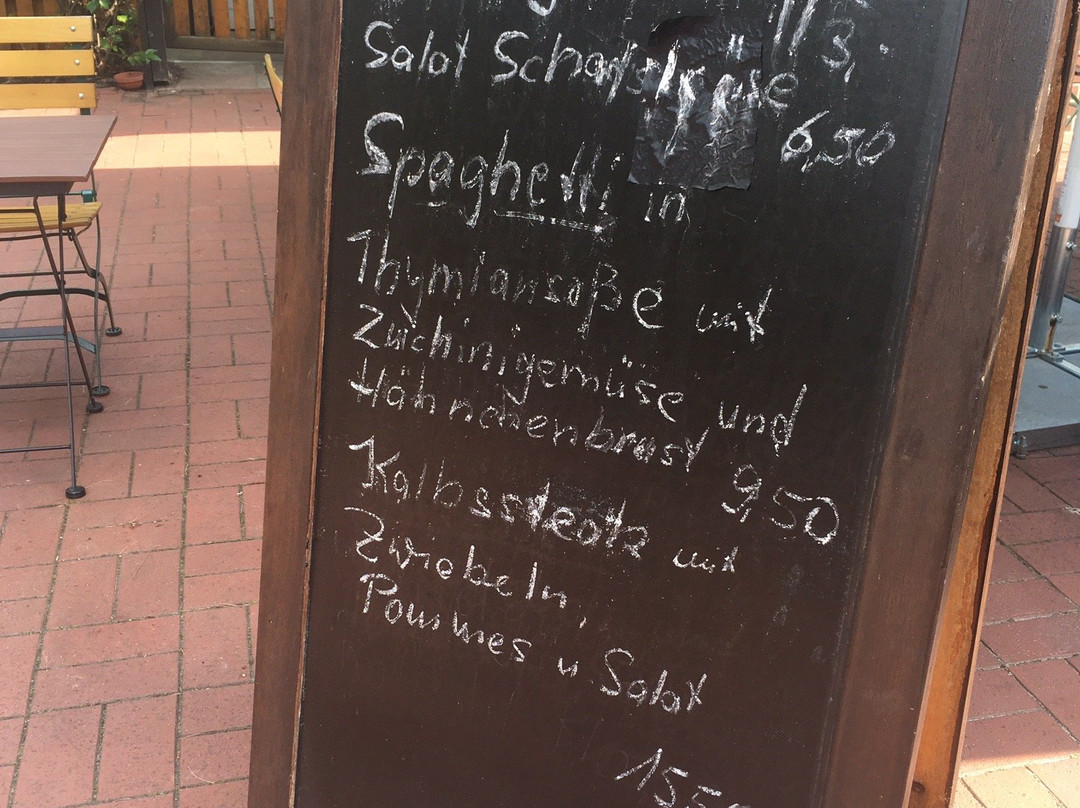 3,
Salat Schafskäse
6,50
Spaghetti in
Thymiansoße mit
Zuichinigemüse und
Hähnchenbrust 9,50
Kalbssteak mit
Zwiebeln,
Pommes u Salat
1550